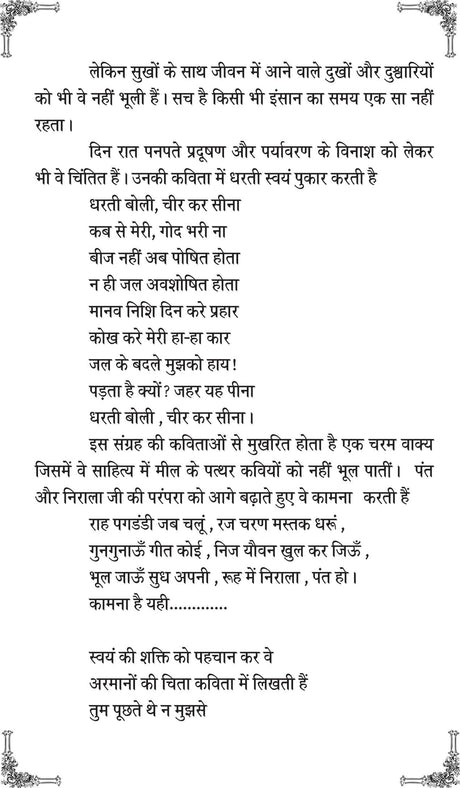 लेकिन सुखों के साथ जीवन में आने वाले दुखों और दुश्वारियों
को भी वे नहीं भूली हैं। सच है किसी भी इंसान का समय एक सा नहीं
रहता।
दिन रात पनपते प्रदूषण और पर्यावरण के विनाश को लेकर
भी वे चिंतित हैं। उनकी कविता में धरती स्वयं पुकार करती है
धरती बोली, चीर कर सीना
कब से मेरी, गोद भरी ना
बीज नहीं अब पोषित होता
न ही जल अवशोषित होता
मानव निशि दिन करे प्रहार
कोख करे मेरी हा-हा कार
जल के बदले मुझको हाय!
पड़ता है क्यों? जहर यह पीना
धरती बोली , चीर कर सीना।
इस संग्रह की कविताओं से मुखरित होता है एक चरम वाक्य
जिसमें वे साहित्य में मील के पत्थर कवियों को नहीं भूल पातीं। पंत
और निराला जी की परंपरा को आगे बढ़ाते हुए वे कामना करती हैं
राह पगडंडी जब चलूं , रज चरण मस्तक धरूं ,
गुनगुनाऊँ गीत कोई , निज यौवन खुल कर जिऊँ ,
भूल जाऊँ सुध अपनी , रूह में निराला , पंत हो।
कामना है यही.............
स्वयं की शक्ति को पहचान कर वे
अरमानों की चिता कविता में लिखती हैं
तुम पूछते थे न मुझसे